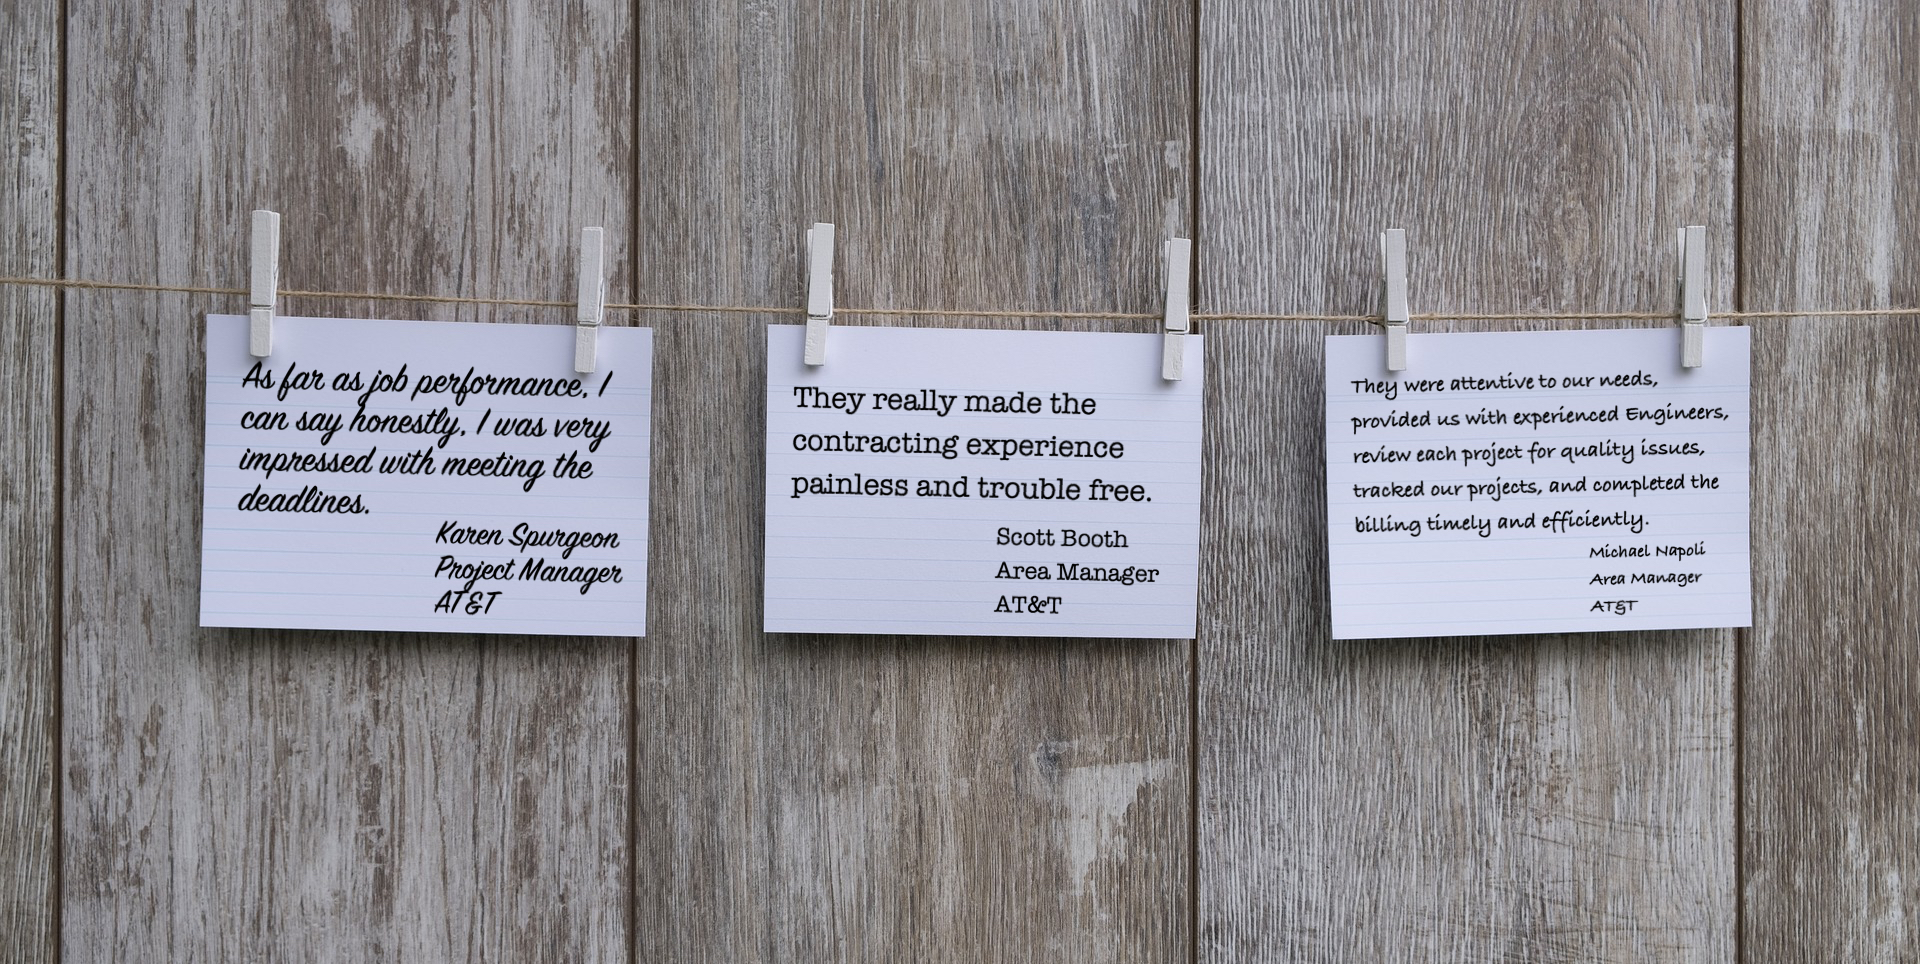 As far as job performance, I
can say honestly, I was very
impressed with meeting the
deadlines.
Karen Spurgeon
Project Manager
AT&T
They really made the
contracting experience
painless and trouble free.
Scott Booth
Area Manager
AT&T
They were attentive to our needs,
provided us with experienced Engineers,
review each project for quality issues,
tracked our projects, and completed the
billing timely and efficiently.
Michael Napoli
Area Manager
AT&T